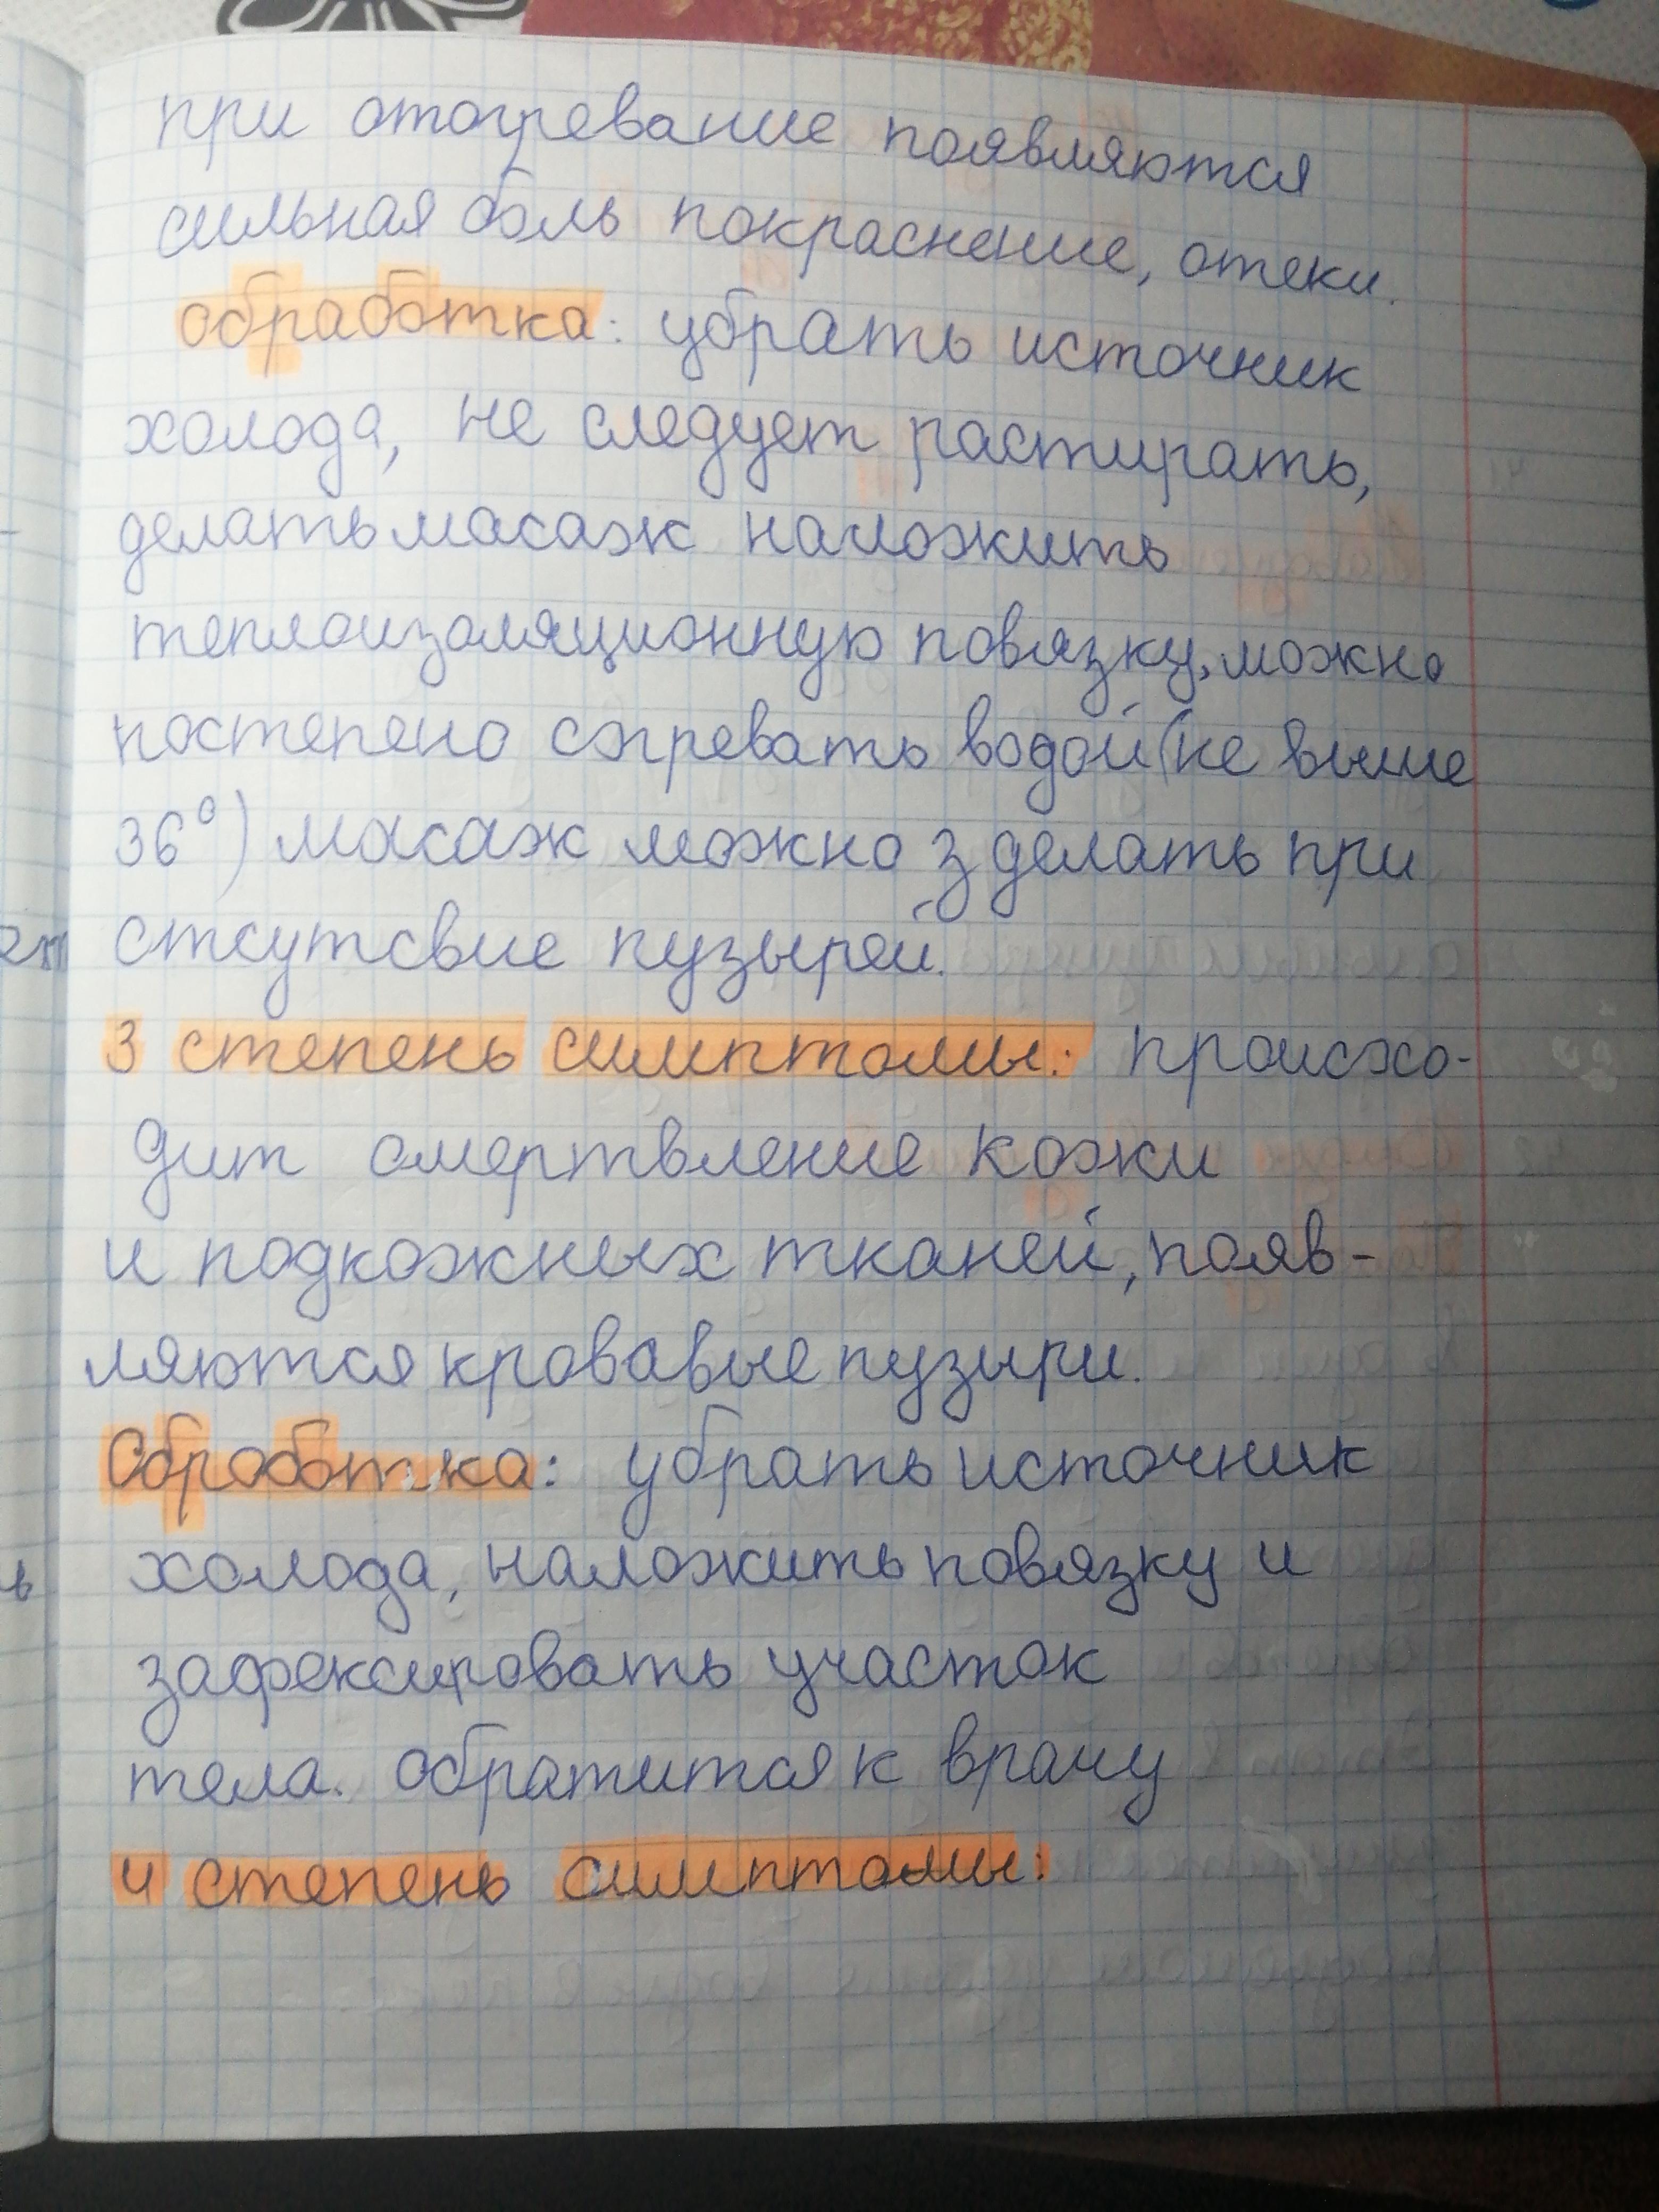 при отогревание появляются
сильная боль покраснение, отеки.
обработка: убрать источник
холода, не следует растирать,
делать масаж наложить
теплоизоляционную повязку, можно
постепено согревать водой (не выше
36°) масаж можно зделать при
отсутсвие пузырей.
3 степень симптомы: происхо-
дит омертвление кожи
и подкожных тканей, появ-
ляются кровавые пузыри.
Обработка: убрать источник
холода, наложить повязку и
зафексировать участок
тела. обратится к врачу
4 степень симптомы: